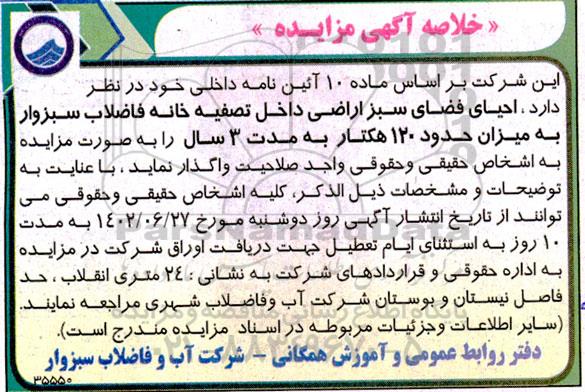 « خلاصه آگهی مزایـــده »
این شرکت بر اساس ماده ۱۰ آئین نامه داخلی خود در نظر
دارد ، احیای فضای سبز اراضی داخل تصفیه خانه فاضلاب سبزوار
به میزان حدود ۱۲۰ هکتار به مدت ۳ سال را به صورت مزایده
به اشخاص حقیقی وحقوقی واجد صلاحیت واگذار نماید ، با عنایت به
توضیحات و مشخصات ذیل الذکر، کلیه اشخاص حقیقی وحقوقی می
توانند از تاریخ انتشار آگهی روز دوشنبه مورخ ۱۴۰۲/۰۶/۲۷ به مدت
۱۰ روز به استثنای ایام تعطیل جهت دریافت اوراق شرکت در مزایده
به اداره حقوقی و قراردادهای شرکت به نشانی : ۲۴ متری انقلاب ، حد
فاصل نیستان و بوستان شرکت آب وفاضلاب شهری مراجعه نمایند.
(سایر اطلاعات وجزئیات مربوطه در اسناد مزایده مندرج است).
دفتر روابط عمومی و آموزش همگانی – شرکت آب و فاضلاب سبزوار
۳۵۵۵۰